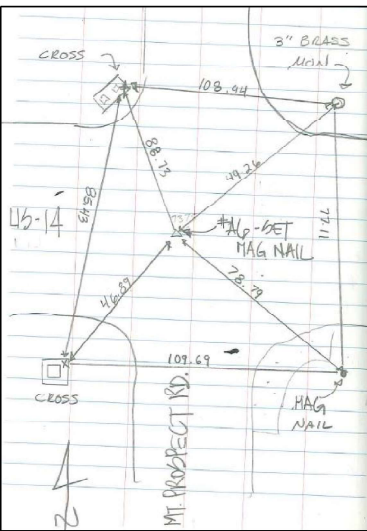 CROSS
3" BRASS
MON
108.44
88.73
49.26
85.43
77.11
45-14
#A6-SET
MAG NAIL
46.89
78.79
109.69
CROSS
MAG
NAIL
MT. PROSPECT RD.